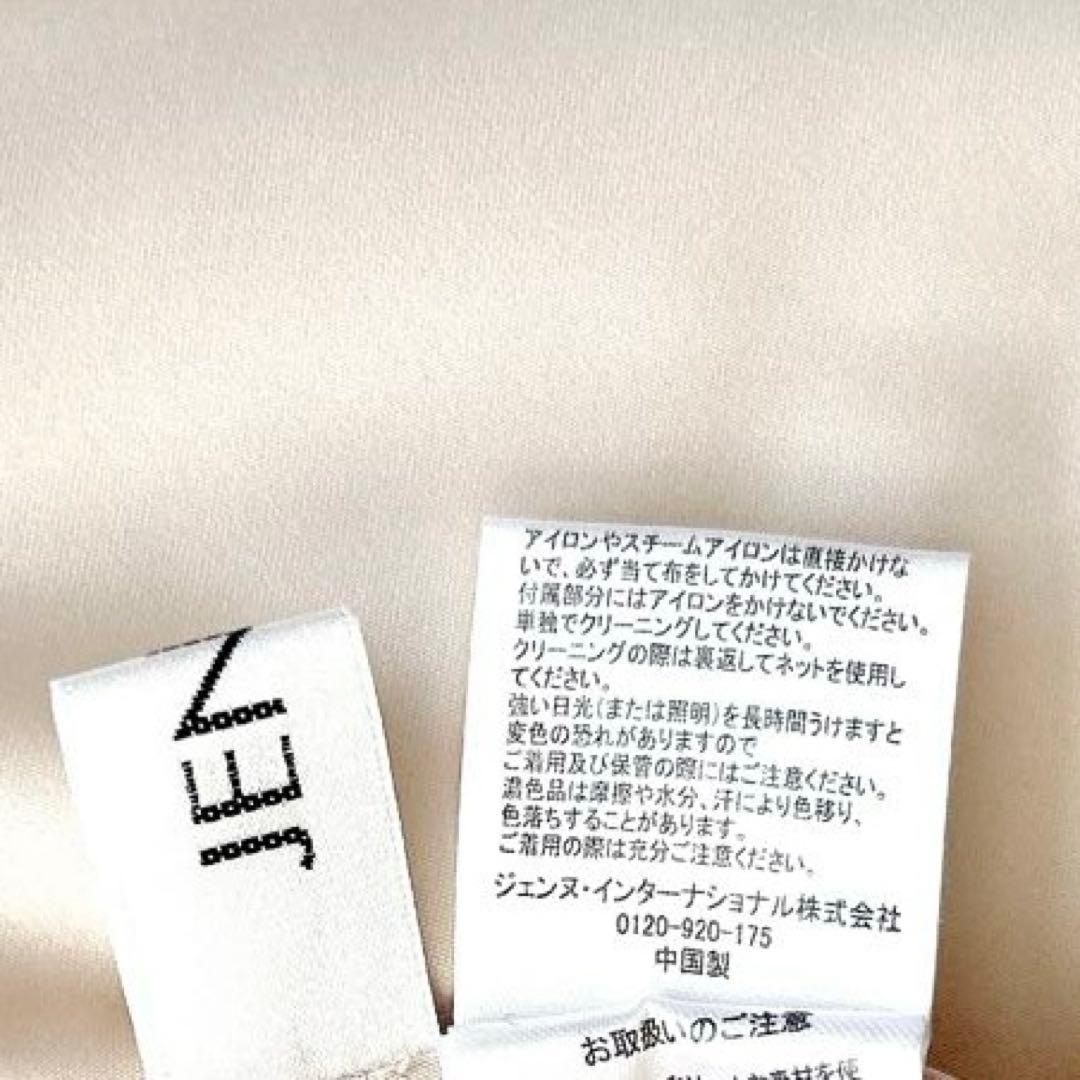 アイロンやスチームアイロンは直接かけな
いで、必ず当て布をしてかけてください。
付属部分にはアイロンをかけないでください。
単独でクリーニングしてください。
クリーニングの際は裏返してネットを使用し
てください。
強い日光(または照明)を長時間うけますと
変色の恐れがありますので
ご着用及び保管の際にはご注意ください。
濃色品は摩擦や水分、汗により色移り、
色落ちすることがあります。
ご着用の際は充分ご注意ください。
ジェンヌ・インターナショナル株式会社
0120-920-175
中国製
お取扱いのご注意
素材を使
JEN